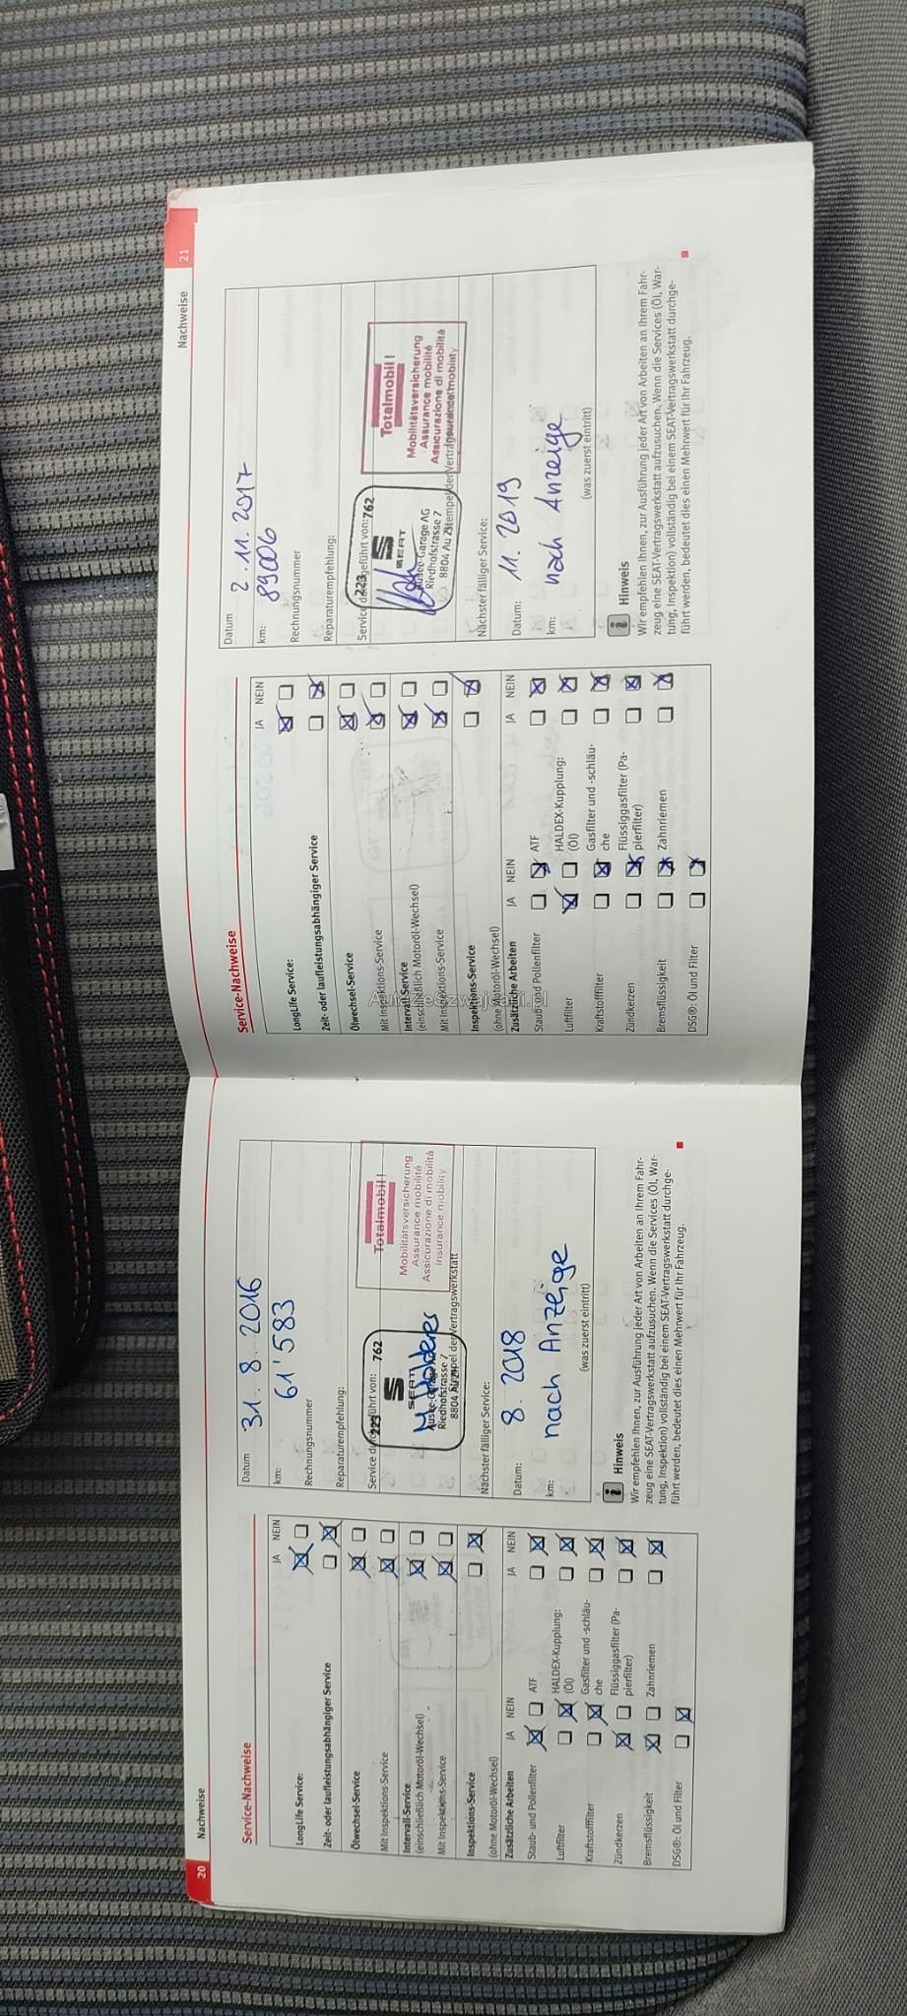 20 Nachweise
Service-Nachweise
JA NEIN
LongLife Service:
Zeit- oder laufleistungsabhängiger Service
Ölwechsel-Service
Mit Inspektions-Service
Intervall-Service
(einschließlich Motoröl-Wechsel)
Mit Inspektions-Service
Inspektions-Service
(ohne Motoröl-Wechsel)
Zusätzliche Arbeiten JA NEIN JA NEIN
Staub- und Pollenfilter ATF
Luftfilter HALDEX-Kupplung:
(Öl)
Kraftstofffilter Gasfilter und -schläu-
che
Zündkerzen Flüssiggasfilter (Pa-
pierfilter)
Bremsflüssigkeit Zahnriemen
DSG®: Öl und Filter
Datum 31. 8. 2016
km: 61'583
Rechnungsnummer
Reparaturempfehlung:
Service durchgeführt von:
223 762
SEAT
Riedhofstrasse 7
8804 Au ZH
Stempel der Vertragswerkstatt
Totalmobil!
Mobilitätsversicherung
Assurance mobilité
Assicurazione di mobilità
insurance mobility
Nächster fälliger Service:
Datum: 8. 2018
km: nach Anzeige
(was zuerst eintritt)
i Hinweis
Wir empfehlen Ihnen, zur Ausführung jeder Art von Arbeiten an Ihrem Fahr-
zeug eine SEAT-Vertragswerkstatt aufzusuchen. Wenn die Services (Öl, War-
tung, Inspektion) vollständig bei einem SEAT-Vertragswerkstatt durchge-
führt werden, bedeutet dies einen Mehrwert für Ihr Fahrzeug.
Nachweise 21
Service-Nachweise
JA NEIN
LongLife Service:
Zeit- oder laufleistungsabhängiger Service
Ölwechsel-Service
Mit Inspektions-Service
Intervall-Service
(einschließlich Motoröl-Wechsel)
Mit Inspektions-Service
Inspektions-Service
(ohne Motoröl-Wechsel)
Zusätzliche Arbeiten JA NEIN JA NEIN
Staub- und Pollenfilter ATF
Luftfilter HALDEX-Kupplung:
(Öl)
Kraftstofffilter Gasfilter und -schläu-
che
Zündkerzen Flüssiggasfilter (Pa-
pierfilter)
Bremsflüssigkeit Zahnriemen
DSG®: Öl und Filter
Datum 2. 11. 2017
km: 89006
Rechnungsnummer
Reparaturempfehlung:
Service durchgeführt von:
223 762
SEAT
Garage AG
Riedhofstrasse 7
8804 Au ZH
Stempel der Vertragswerkstatt
Totalmobil!
Mobilitätsversicherung
Assurance mobilité
Assicurazione di mobilità
insurance mobility
Nächster fälliger Service:
Datum: 11. 2019
km: nach Anzeige
(was zuerst eintritt)
i Hinweis
Wir empfehlen Ihnen, zur Ausführung jeder Art von Arbeiten an Ihrem Fahr-
zeug eine SEAT-Vertragswerkstatt aufzusuchen. Wenn die Services (Öl, War-
tung, Inspektion) vollständig bei einem SEAT-Vertragswerkstatt durchge-
führt werden, bedeutet dies einen Mehrwert für Ihr Fahrzeug.